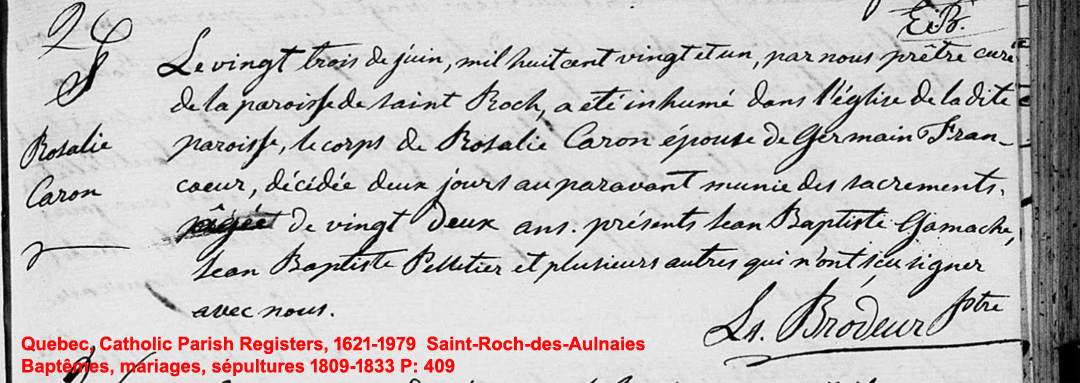 E:B.
S
Le vingt trois de juin, mil huit cent vingt et un, par nous prêtre curé
de la paroisse de saint Roch, a eté inhumé dans l'église de la dite
Rosalie
Caron
paroisse, le corps de Rosalie Caron épouse de Germain Fran-
coeur, décidée deux jours au paravant munie des sacrements.
agée de vingt deux ans. présents Jean Baptiste Gamache,
Jean Baptiste Pelletier et plusieurs autres qui n'ont sçu signer
avec nous.
Ls. Brodeur Ptre
Quebec, Catholic Parish Registers, 1621-1979 Saint-Roch-des-Aulnaies
Baptêmes, mariages, sépultures 1809-1833 P: 409